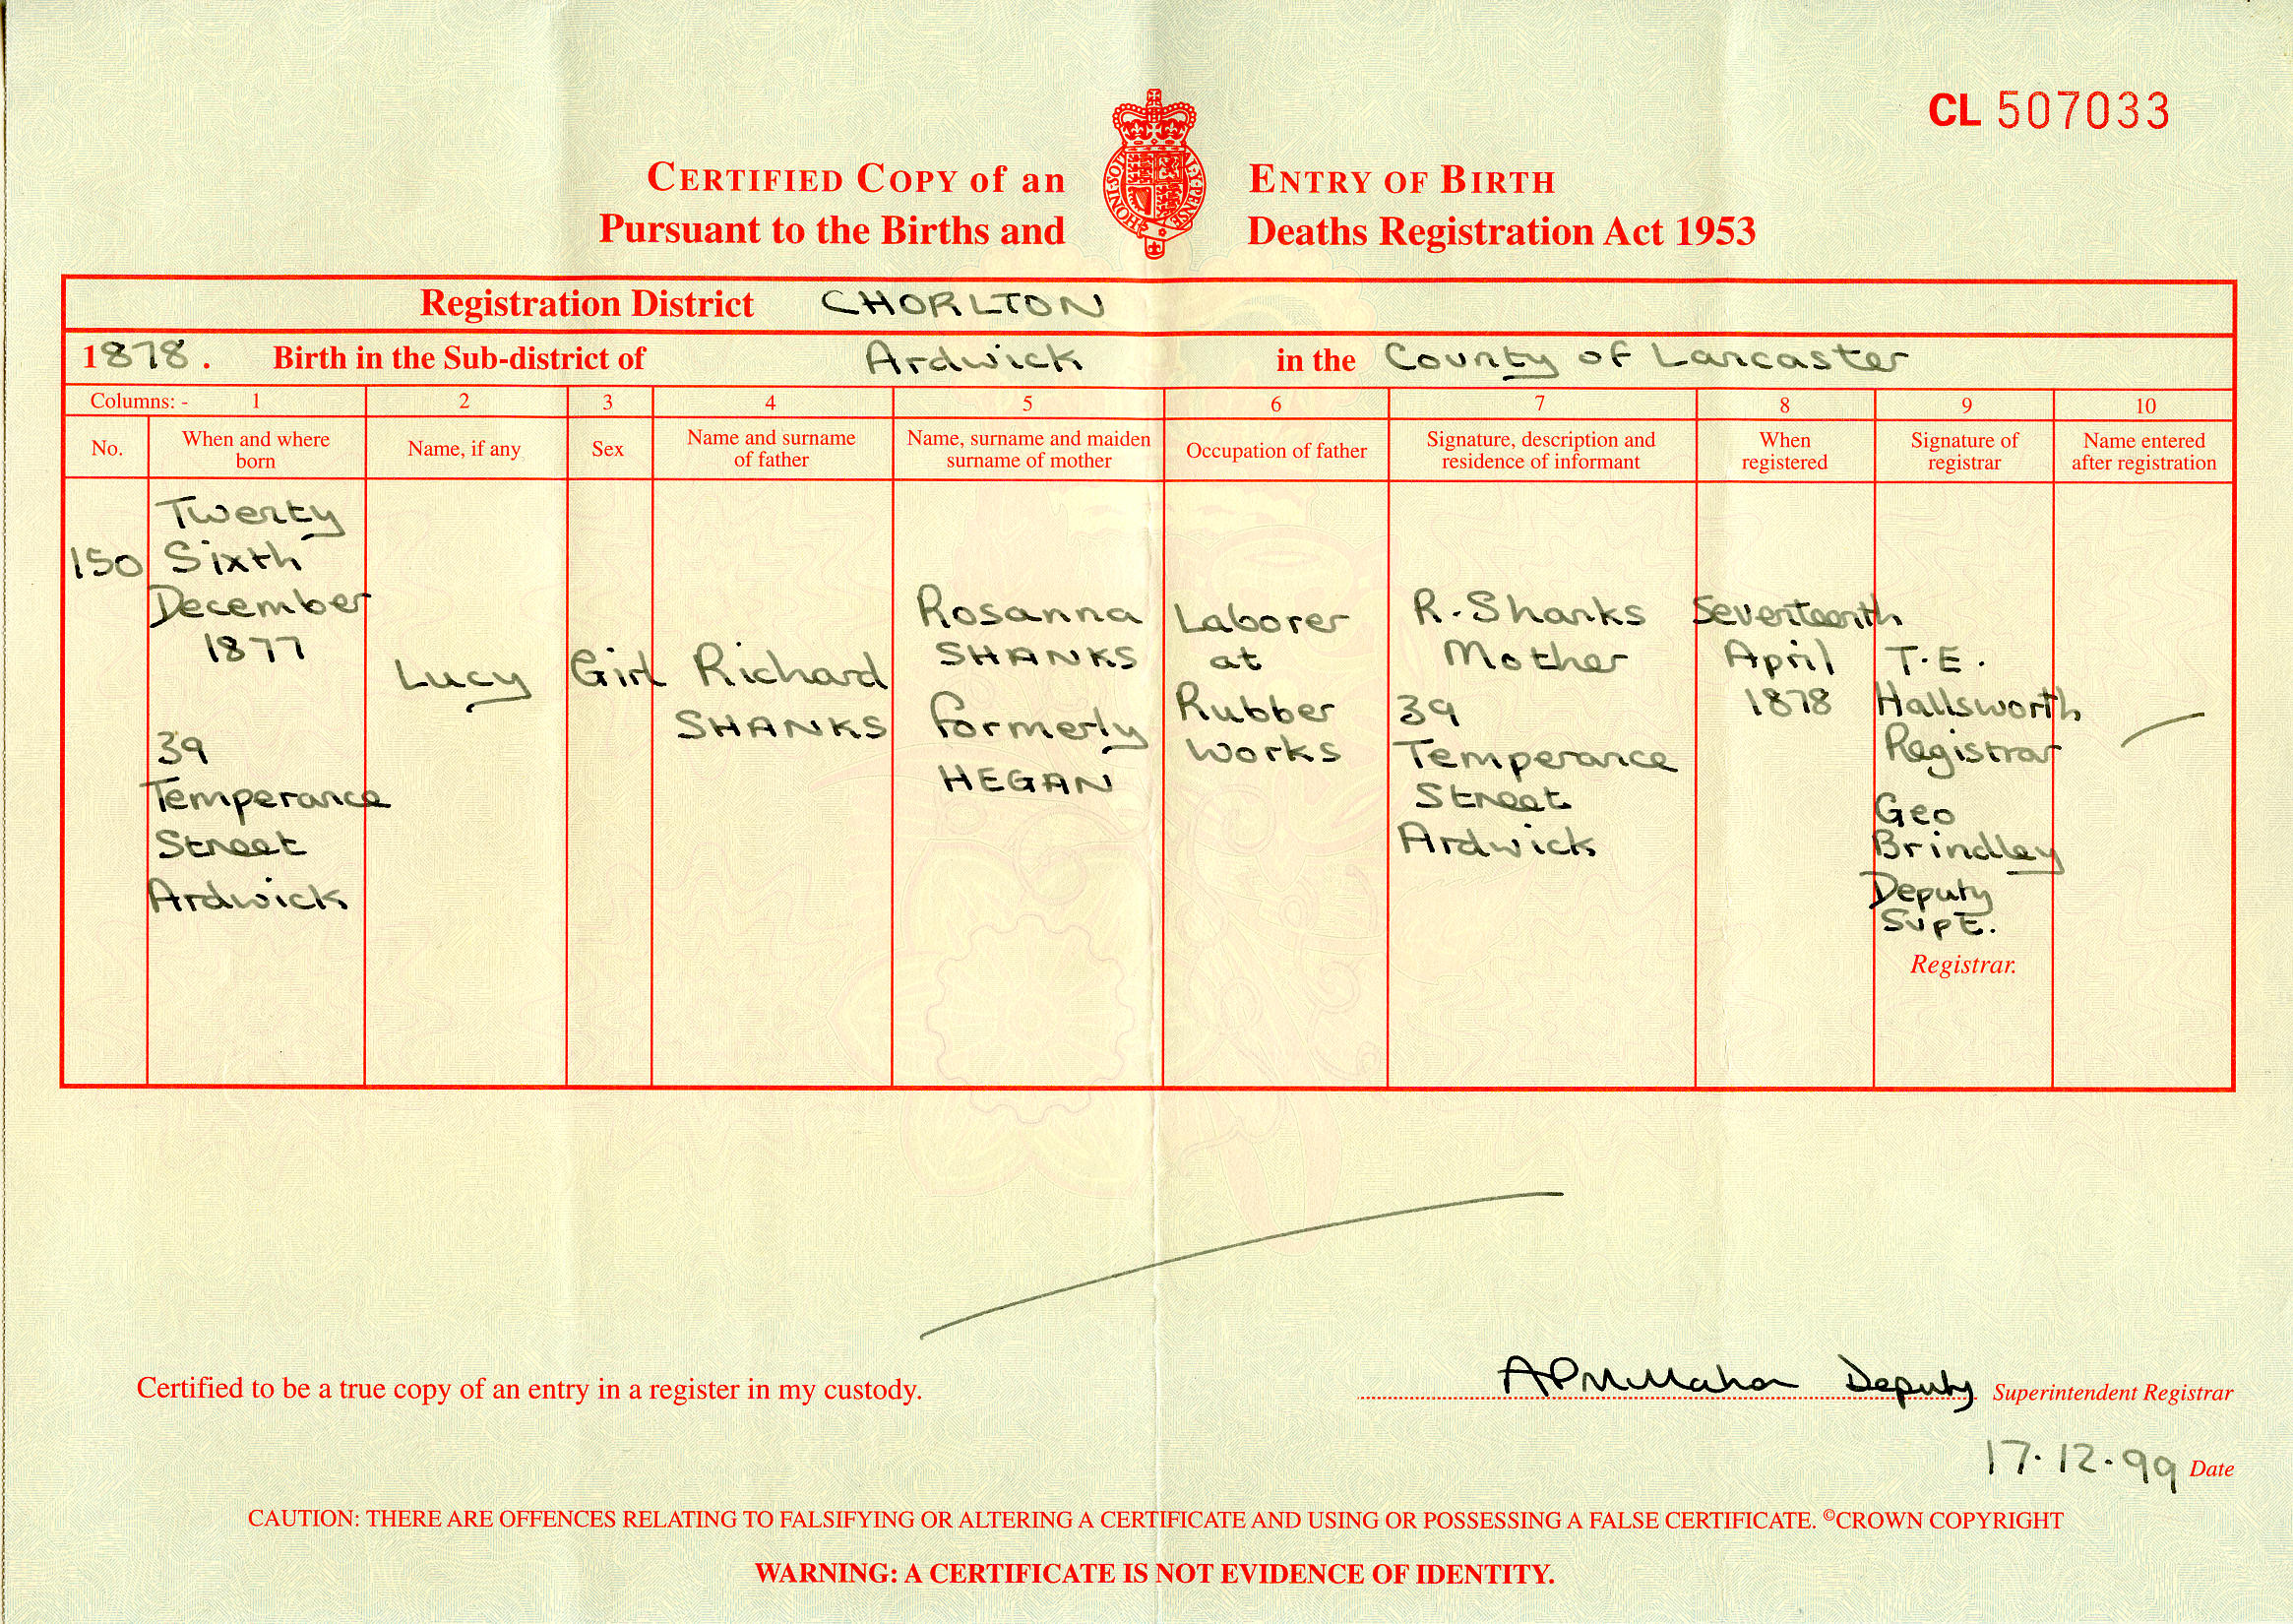 CL 507033
CERTIFIED COPY of an ENTRY OF BIRTH
Pursuant to the Births and Deaths Registration Act 1953
HONI·SOIT Y·PENSE
Registration District CHORLTON
1878. Birth in the Sub-district of Ardwick in the County of Lancaster
Columns: - 1 2 3 4 5 6 7 8 9 10
No.
When and where
born
Name, if any
Sex
Name and surname
of father
Name, surname and maiden
surname of mother
Occupation of father
Signature, description and
residence of informant
When
registered
Signature of
registrar
Name entered
after registration
150
Twenty
Sixth
December
1877
39
Temperance
Street
Ardwick
Lucy
Girl
Richard
SHANKS
Rosanna
SHANKS
formerly
HEGAN
Laborer
at
Rubber
Works
R. Shanks
Mother
39
Temperance
Street
Ardwick
Seventeenth
April
1878
T.E.
Hallsworth
Registrar
Geo
Brindley
Deputy
Supt.
Registrar.
Certified to be a true copy of an entry in a register in my custody.
Deputy Superintendent Registrar
17.12.99 Date
CAUTION: THERE ARE OFFENCES RELATING TO FALSIFYING OR ALTERING A CERTIFICATE AND USING OR POSSESSING A FALSE CERTIFICATE. ©CROWN COPYRIGHT
WARNING: A CERTIFICATE IS NOT EVIDENCE OF IDENTITY.